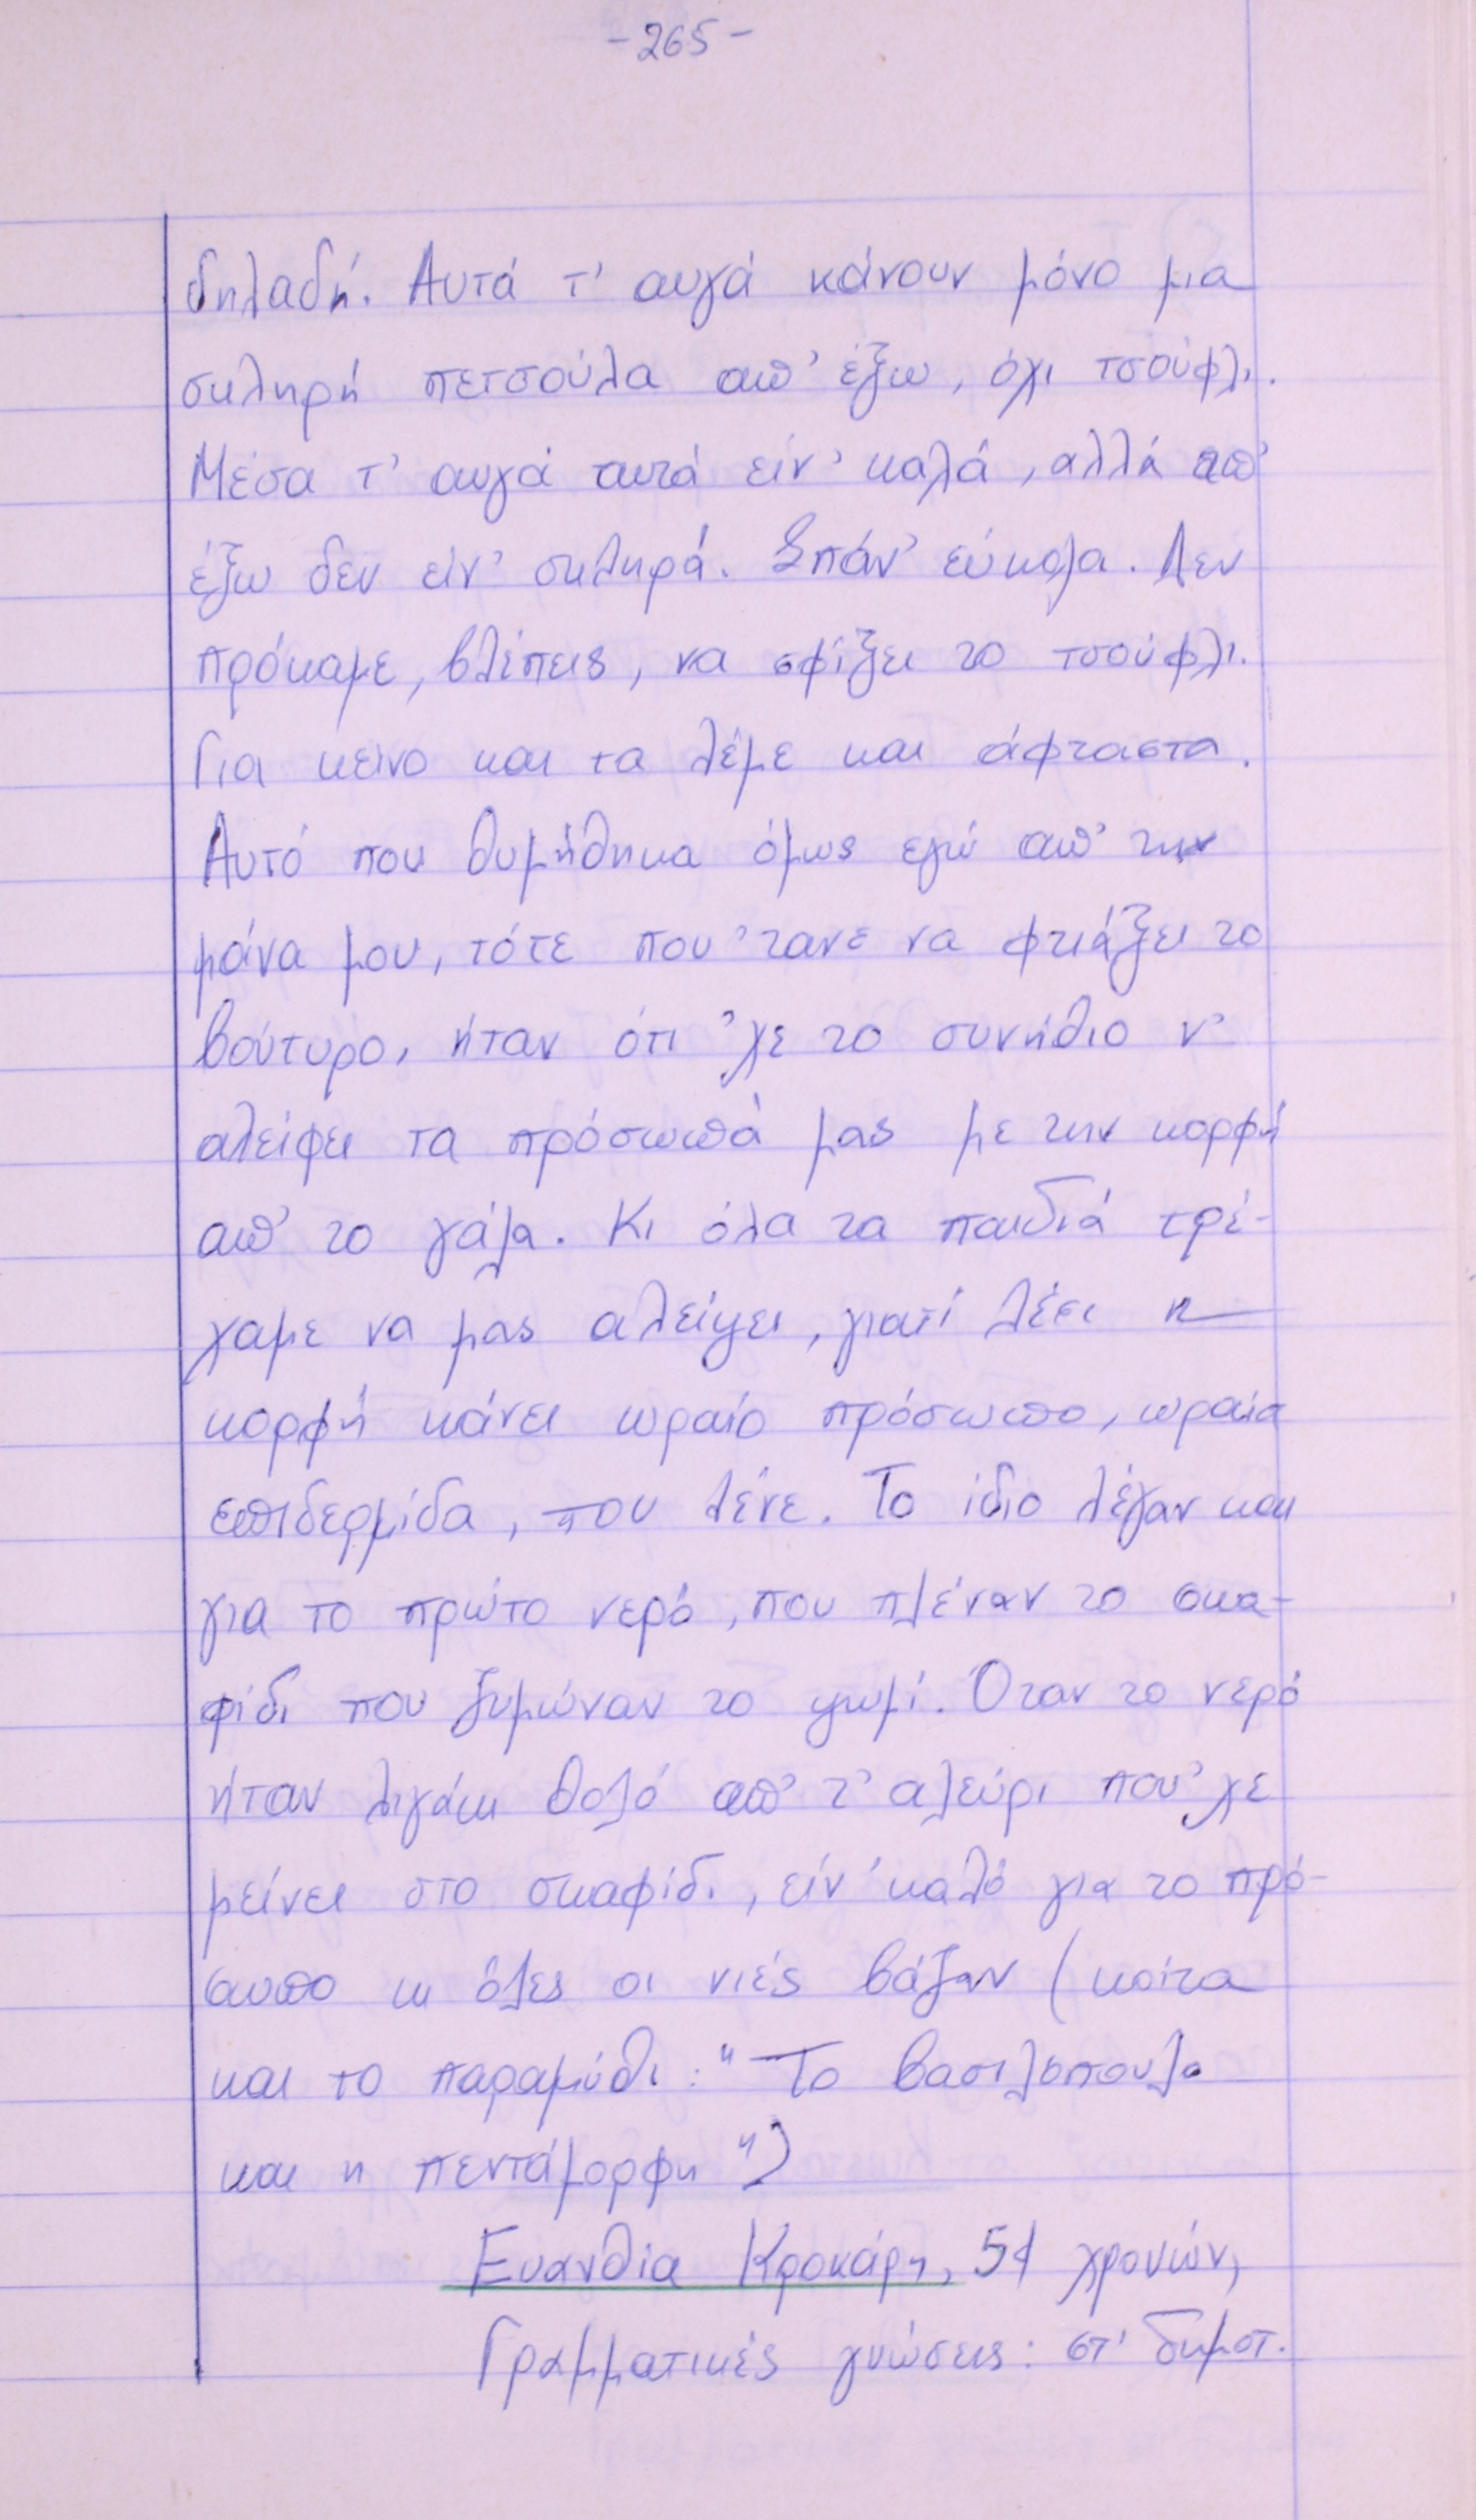 -265-
δηλαδή. Αυτά τ' αυγά κάνουν μόνο μια
σκληρή πετσούλα απ' έξω, όχι τσούφλι.
Μέσα τ' αυγά αυτά είν' καλά, αλλά απ'
έξω δεν είν' σκληρά. Σπάν' εύκολα. Δεν
πρόκαμε, βλέπεις, να σφίξει το τσούφλι.
Για κείνο και τα λέμε και άφταστα.
Αυτό που θυμήθηκα όμως εγώ απ' την
μάνα μου, τότε που 'τανε να φτιάξει το
βούτυρο, ήταν ότι 'χε το συνήθιο ν'
αλείφει τα πρόσωπά μας με την κορφή
απ' το γάλα. Κι όλα τα παιδιά τρέ-
χαμε να μας αλείψει, γιατί λέει η
κορφή κάνει ωραίο πρόσωπο, ωραία
επιδερμίδα, που λένε. Το ίδιο λέγαν και
για το πρώτο νερό, που πλέναν το σκα-
φίδι που ζυμώναν το ψωμί. Όταν το νερό
ήταν λιγάκι θολό απ' τ' αλεύρι που 'χε
μείνει στο σκαφίδι, είν' καλό για το πρό-
σωπο κι όλες οι νιές βάζαν (κοίτα
και το παραμύθι: "Το βασιλόπουλο
και η πεντάμορφη")
Ευανθία Κροκάρη, 51 χρονών,
Γραμματικές γνώσεις: στ' δημοτ.